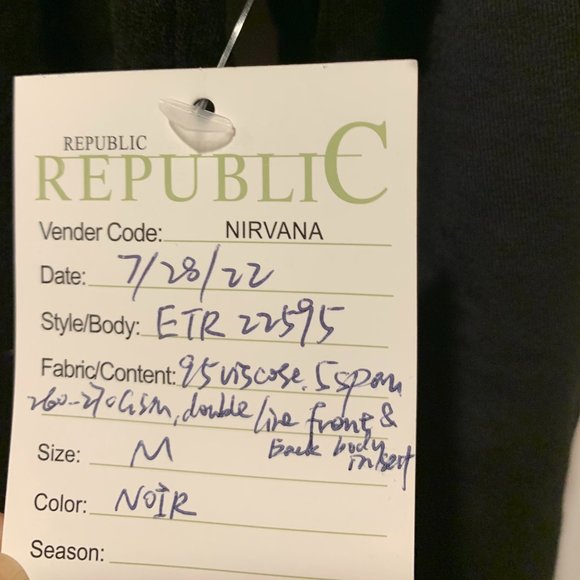 REPUBLIC
REPUBLIC
Vender Code: NIRVANA
Date: 7/28/22
Style/Body: ETR 22595
Fabric/Content: 95 viscose. 5 span
260-270 GSM, double line front &
back body
insert
Size: M
Color: NOIR
Season: